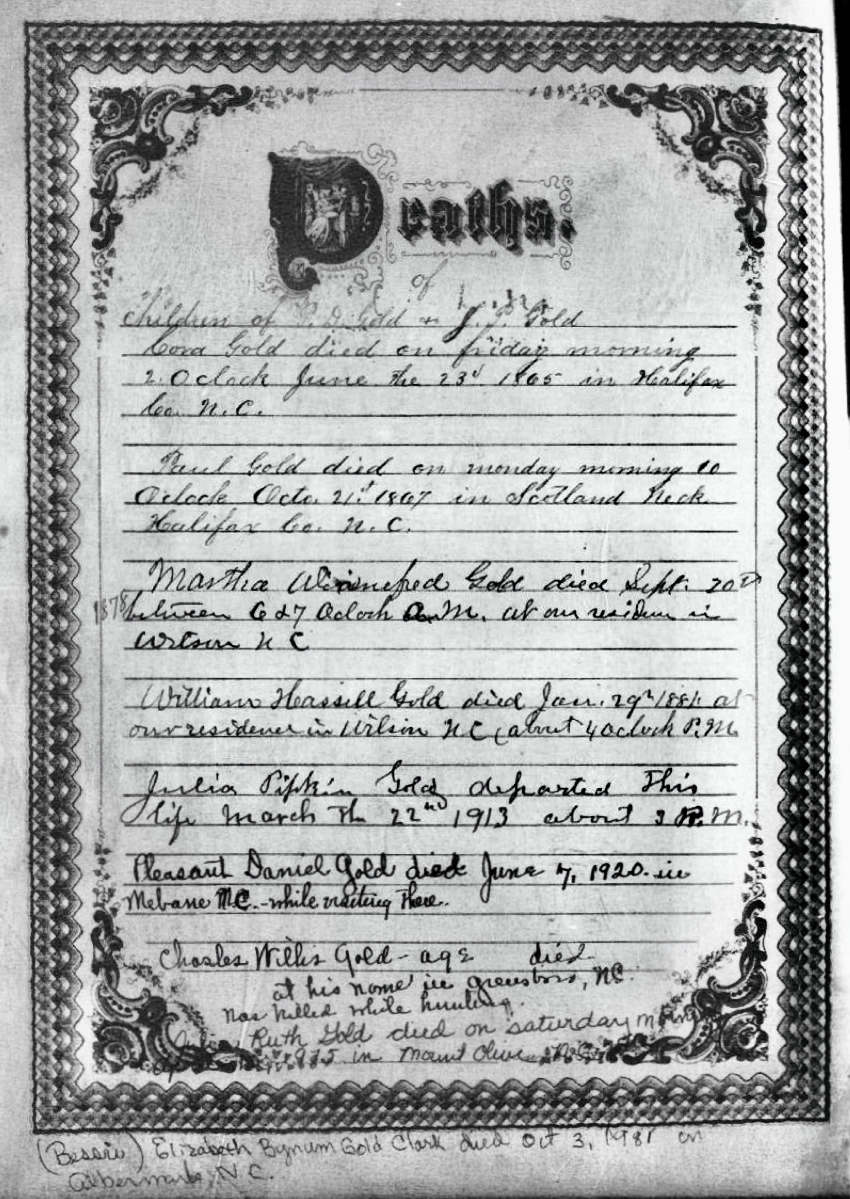 Deaths.
of
Children of P. D. Gold & J. P. Gold
Cora Gold died on friday morning
2. Oclock June the 23d 1865 in Halifax
Co. N.C.
Paul Gold died on monday morning 10
Oclock Octo. 21st 1867 in Scotland Neck
Halifax Co. N.C.
Martha Winnefred Gold died Sept. 20th
1878 between 6 & 7 Oclock A.M. at our residence in
Wilson N C
William Hassell Gold died Jan. 29th 1884 at
our residence in Wilson N C, about 4 Oclock P.M.
Julia Pipkin Gold departed This
life March Th 22nd 1913 about 3 P.M.
Pleasant Daniel Gold died June 7, 1920. in
Mebane N.C. - while visiting there.
Charles Willis Gold - age died
at his home in Greensboro, NC.
was killed while hunting.
Ruth Gold died on saturday
in Mount Olive N.C.
(Bessie) Elizabeth Bynum Gold Clark died Oct 3, 1981 in
Albermarle, N.C.